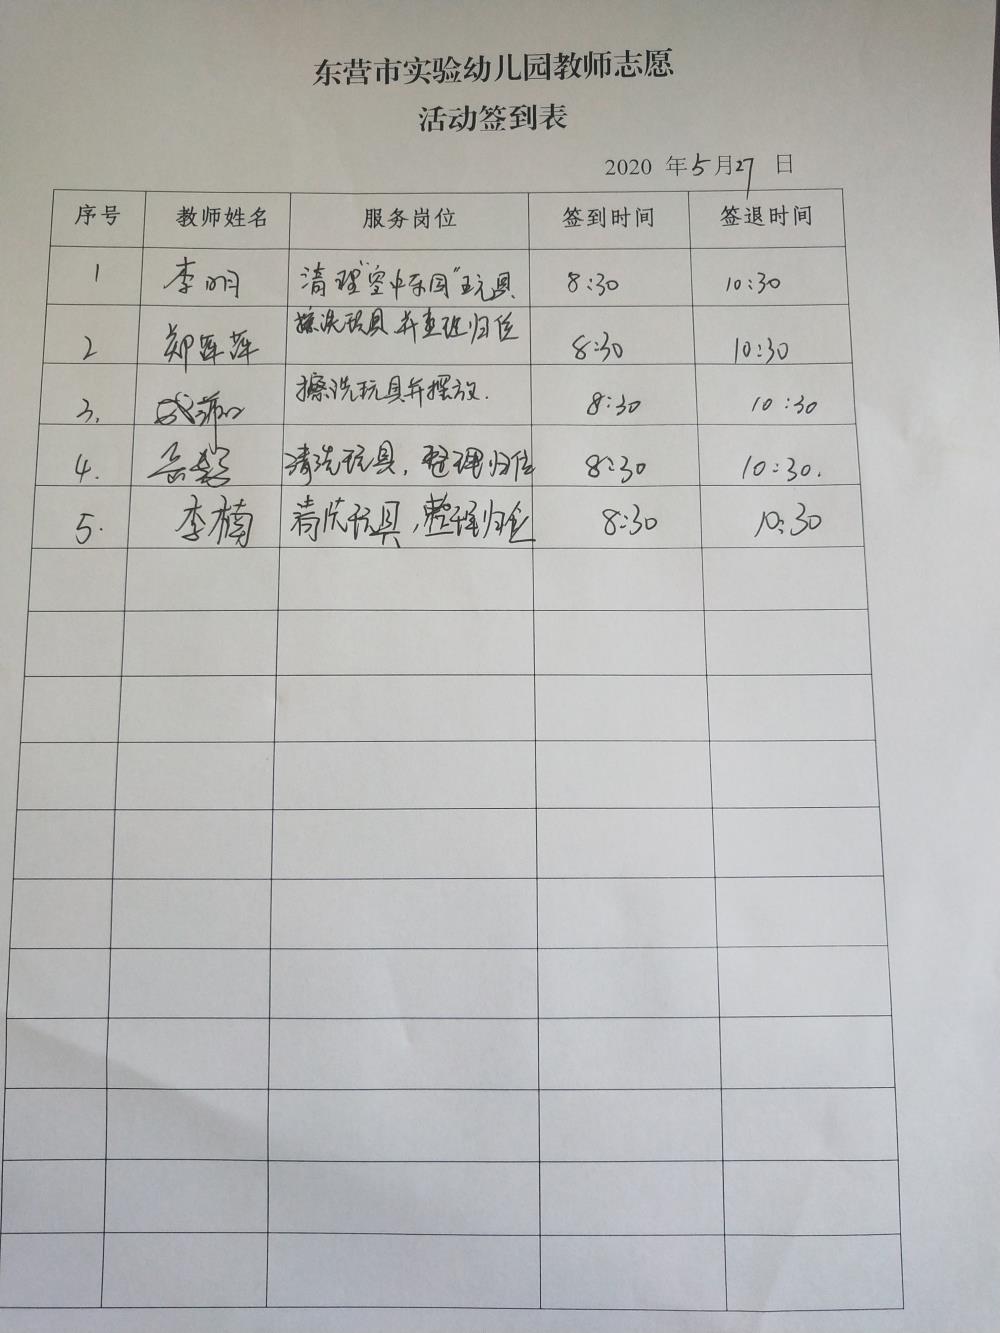 东营市实验幼儿园教师志愿
活动签到表
2020 年5月27日
序号 教师姓名 服务岗位 签到时间 签退时间
1 李明 清理“空中乐园”玩具 8:30 10:30
2 郑军萍 擦洗玩具并查班归位 8:30 10:30
3. 擦洗玩具并摆放. 8:30 10:30
4. 岳 清洗玩具，整理归位 8:30 10:30.
5. 李楠 清洗玩具，整理归位 8:30 10:30